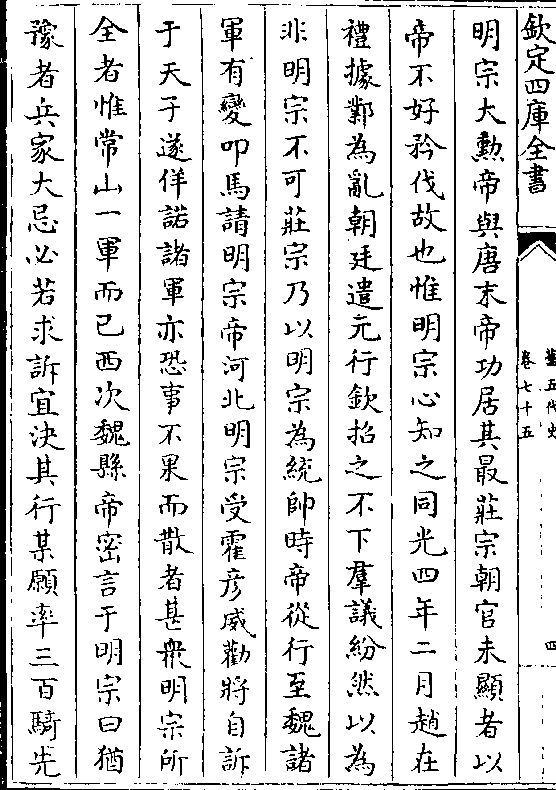 欽定四庫全書
舊五代史
卷七十五
四
明宗大勲帝與唐末帝功居其最莊宗朝官未顯者以
帝不好矜伐故也惟明宗心知之同光四年二月趙在
禮據鄴為亂朝廷遣元行欽招之不下羣議紛然以為
非明宗不可莊宗乃以明宗為統帥時帝從行至魏諸
軍有變叩馬請明宗帝河北明宗受霍彦威勸將自訴
于天子遂佯諾諸軍亦恐事不果而散者甚衆明宗所
全者惟常山一軍而已西次魏縣帝密言于明宗曰猶
豫者兵家大忌必若求訴宜決其行某願率三百騎先